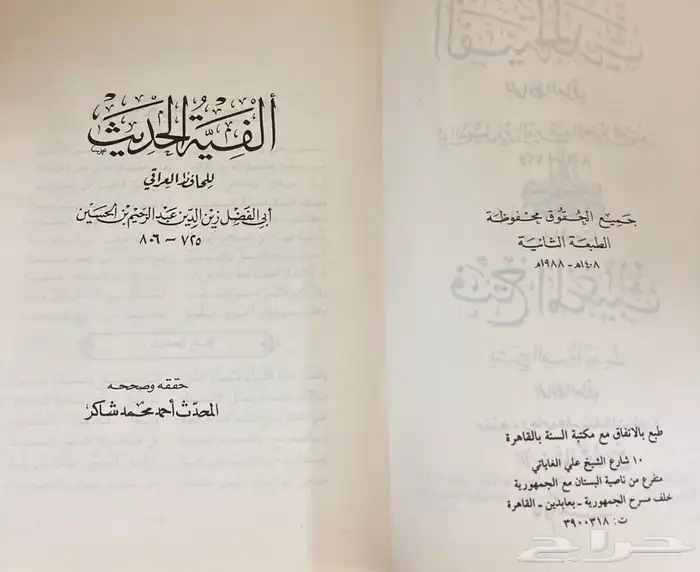 جميع الحقوق محفوظة
الطبعة الثانية
١٤٠٨هـ - ١٩٨٨م
طبع بالاتفاق مع مكتبة السنة بالقاهرة
١٠ شارع الشيخ علي الغاياتي
متفرع من ناصية البستان مع الجمهورية
خلف مسرح الجمهورية - بعابدين - القاهرة
ت : ٣٩٠٠٣١٨
حراج
ألفية الحديث
للحافظ العراقي
أبي الفضل زين الدين عبد الرحيم بن الحسين
٧٢٥ - ٨٠٦
حققه وصححه
المحدث أحمد محمد شاكر